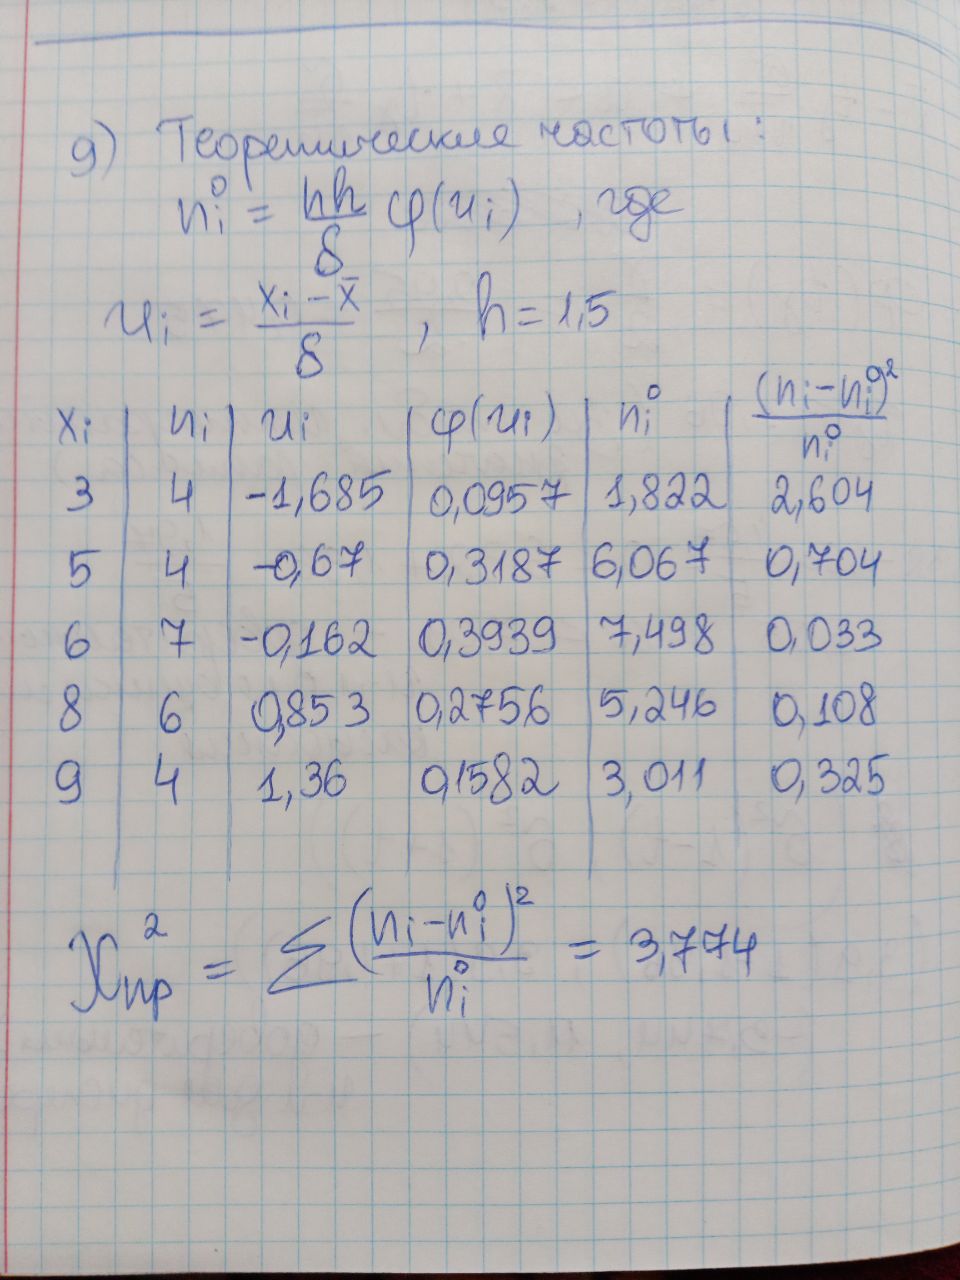 9) Теоретические частоты:
nᵢ⁰ = nh/δ φ(uᵢ) , где
uᵢ = (xᵢ – x̄)/δ , h = 1,5
xᵢ | nᵢ | uᵢ | φ(uᵢ) | nᵢ⁰ | (nᵢ – nᵢ⁰)²/nᵢ⁰
3 | 4 | -1,685 | 0,0957 | 1,822 | 2,604
5 | 4 | -0,67 | 0,3187 | 6,067 | 0,704
6 | 7 | -0,162 | 0,3939 | 7,498 | 0,033
8 | 6 | 0,853 | 0,2756 | 5,246 | 0,108
9 | 4 | 1,36 | 0,1582 | 3,011 | 0,325
χ²пр = Σ (nᵢ – nᵢ⁰)²/nᵢ⁰ = 3,774